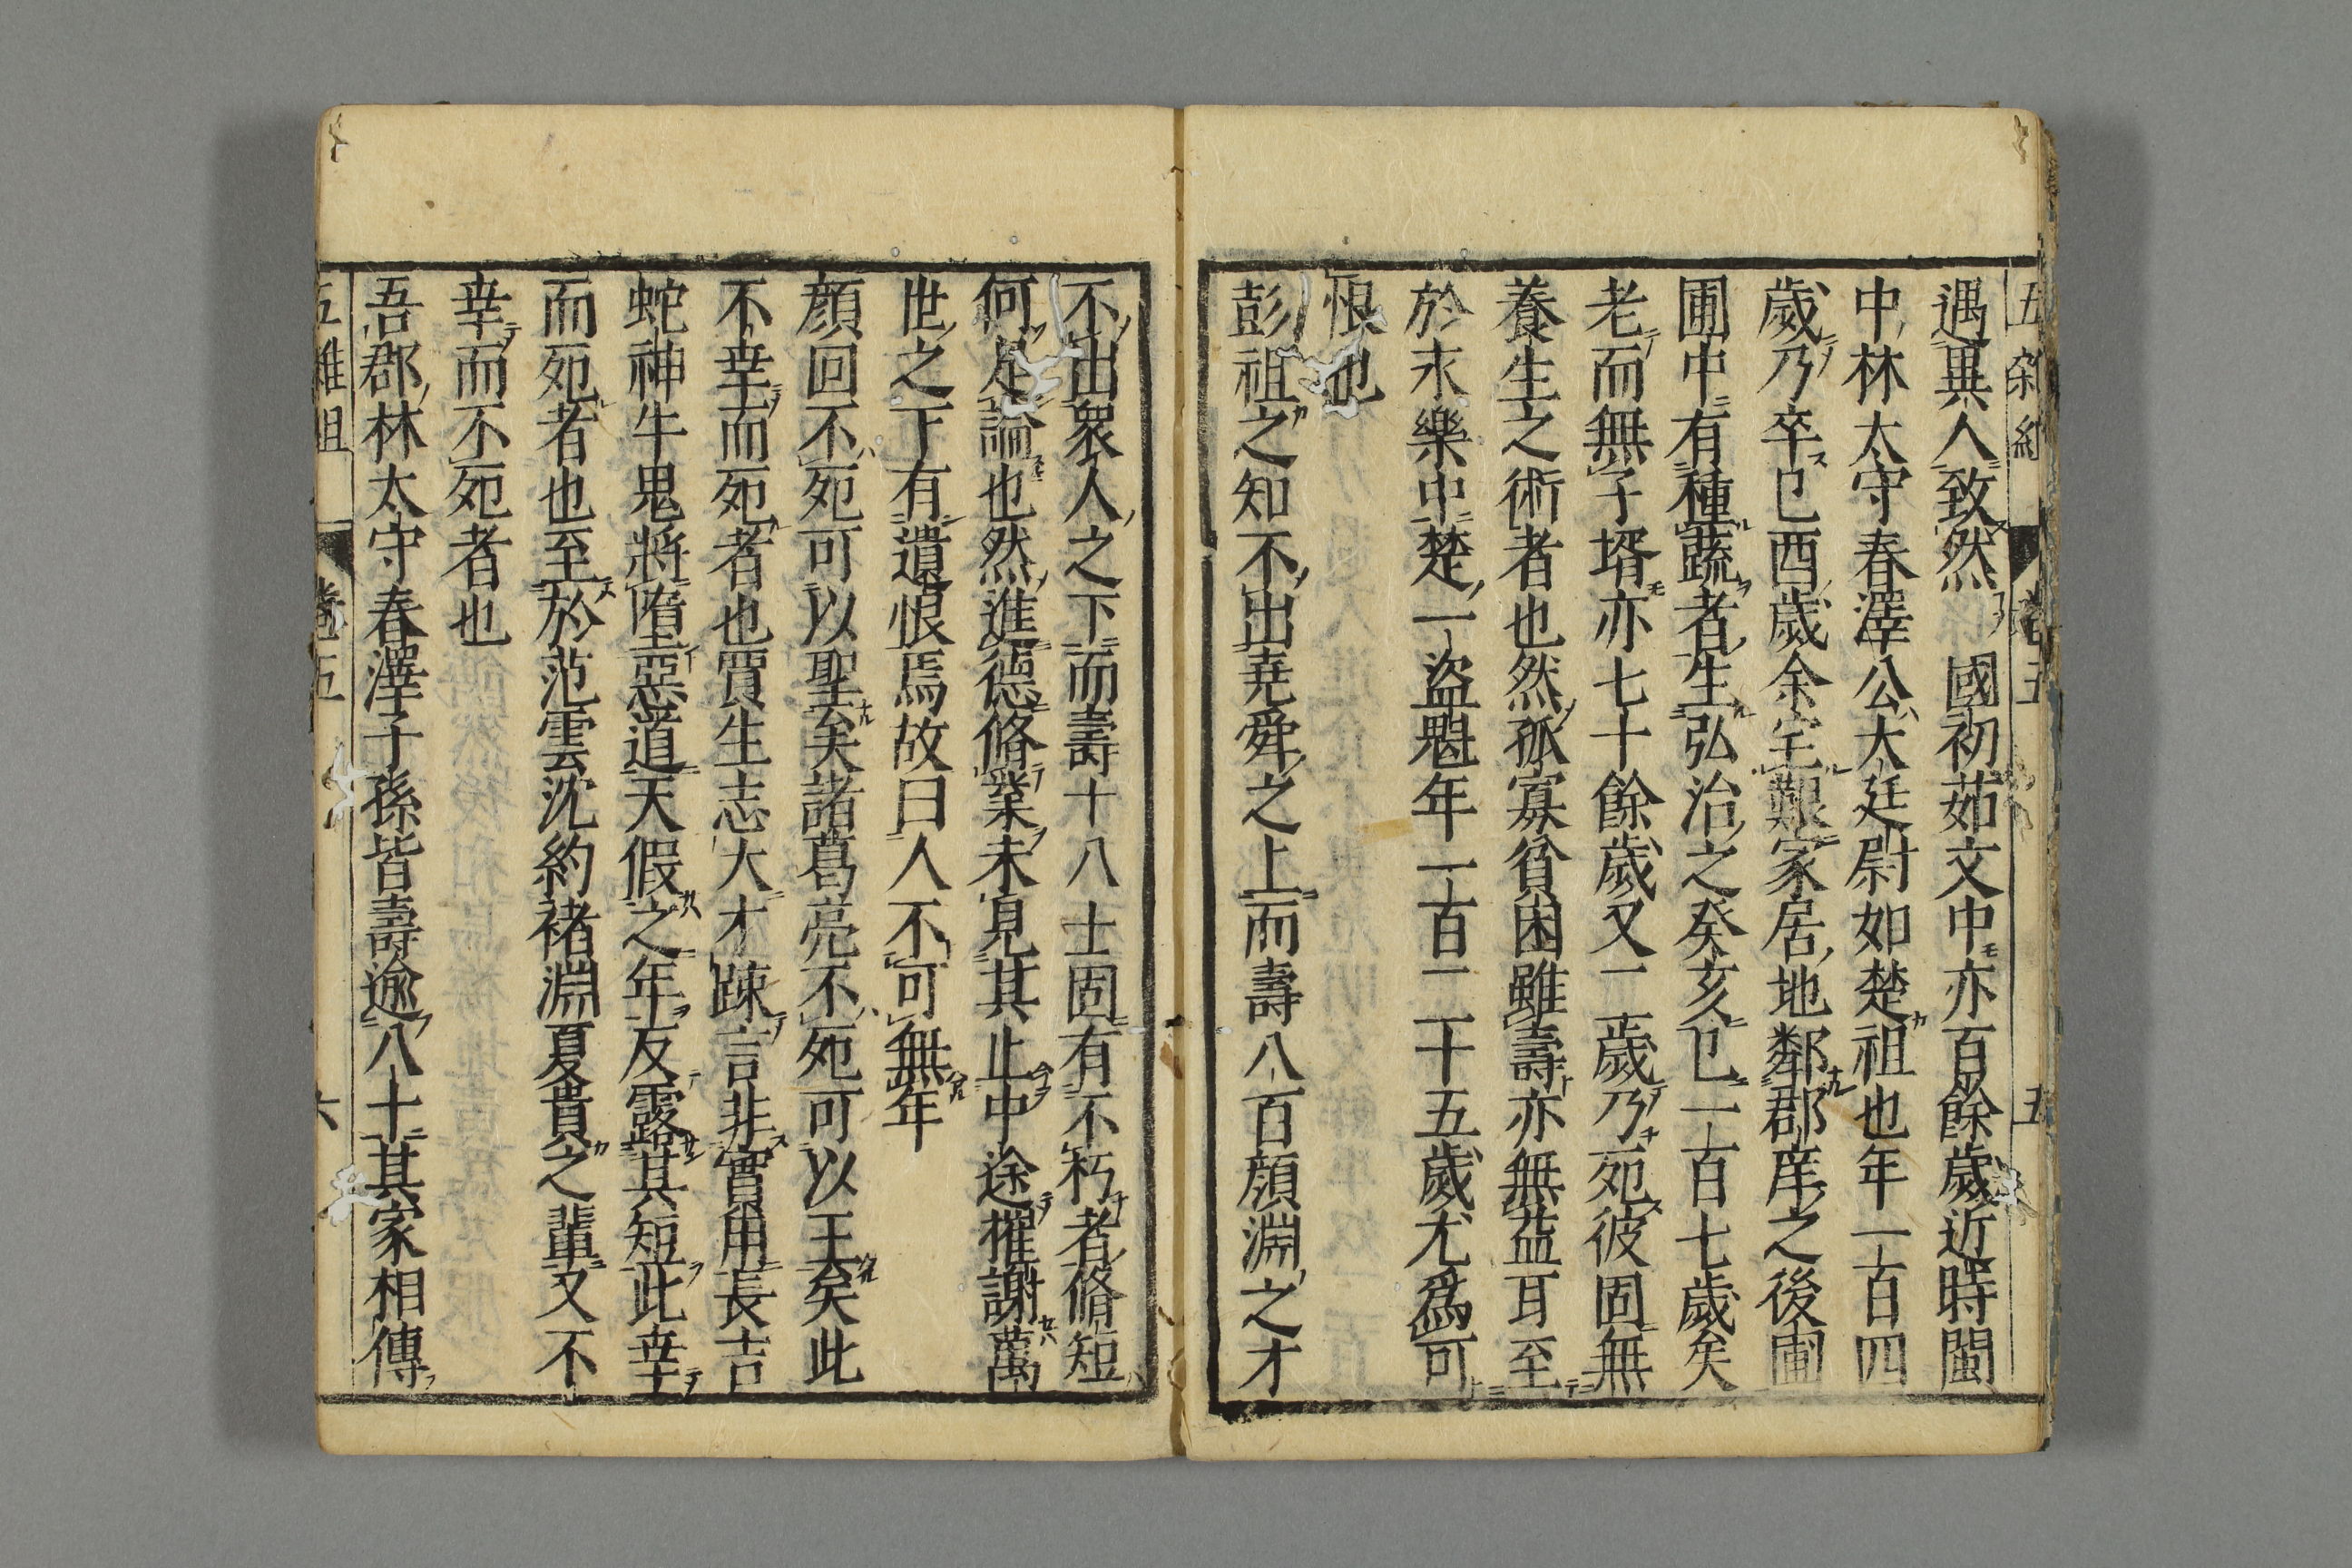 五雜組 卷五 五
遇異人致然 國初茹文中亦百餘歲近時閩
中林太守春澤公大廷尉如楚祖也年一百四
歲乃卒己酉歲余室艱家居地鄰郡庠之後圃
圃中有種蔬者生弘治之癸亥已一百七歲矣
老而無子壻亦七十餘歲又二歲乃死彼固無
養生之術者也然孤寡貧困雖壽亦無益耳至
於永樂中楚一盜魁年一百二十五歲尤爲可
恨也
彭祖之知不出堯舜之上而壽八百顏淵之才
不出衆人之下而壽十八士固有不朽者脩短
何足論也然進德脩業未見其止中途摧謝萬
世之下有遺恨焉故曰人不可無年
顏回不死可以聖矣諸葛亮不死可以王矣此
不幸而死者也賈生志大才踈言非實用長吉
蛇神牛鬼將墮惡道天假之年反露其短此幸
而死者也至於范雲沈約褚淵夏貴之輩又不
幸而不死者也
吾郡林太守春澤子孫皆壽逾八十其家相傳
五雜組 卷五 六